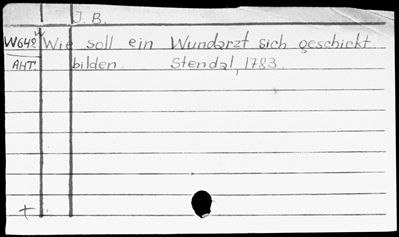 J. B.
W64w Wie soll ein Wundarzt sich geschickt
AHT. bilden. Stendal, 1783.